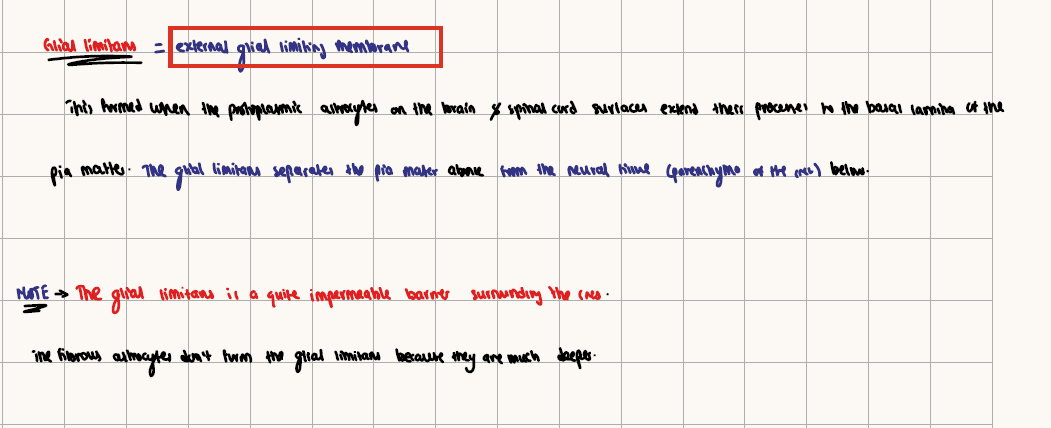 Glial limitans = external glial limiting membrane
This formed when the protoplasmic astrocytes on the brain & spinal cord surfaces extend their processes to the basal lamina of the
pia matter. The glial limitans separates the pia mater above from the neural tissue (parenchyma of the CNS) below.
NOTE → The glial limitans is a quite impermeable barrier surrounding the CNS.
The fibrous astrocytes don't form the glial limitans because they are much deeper.